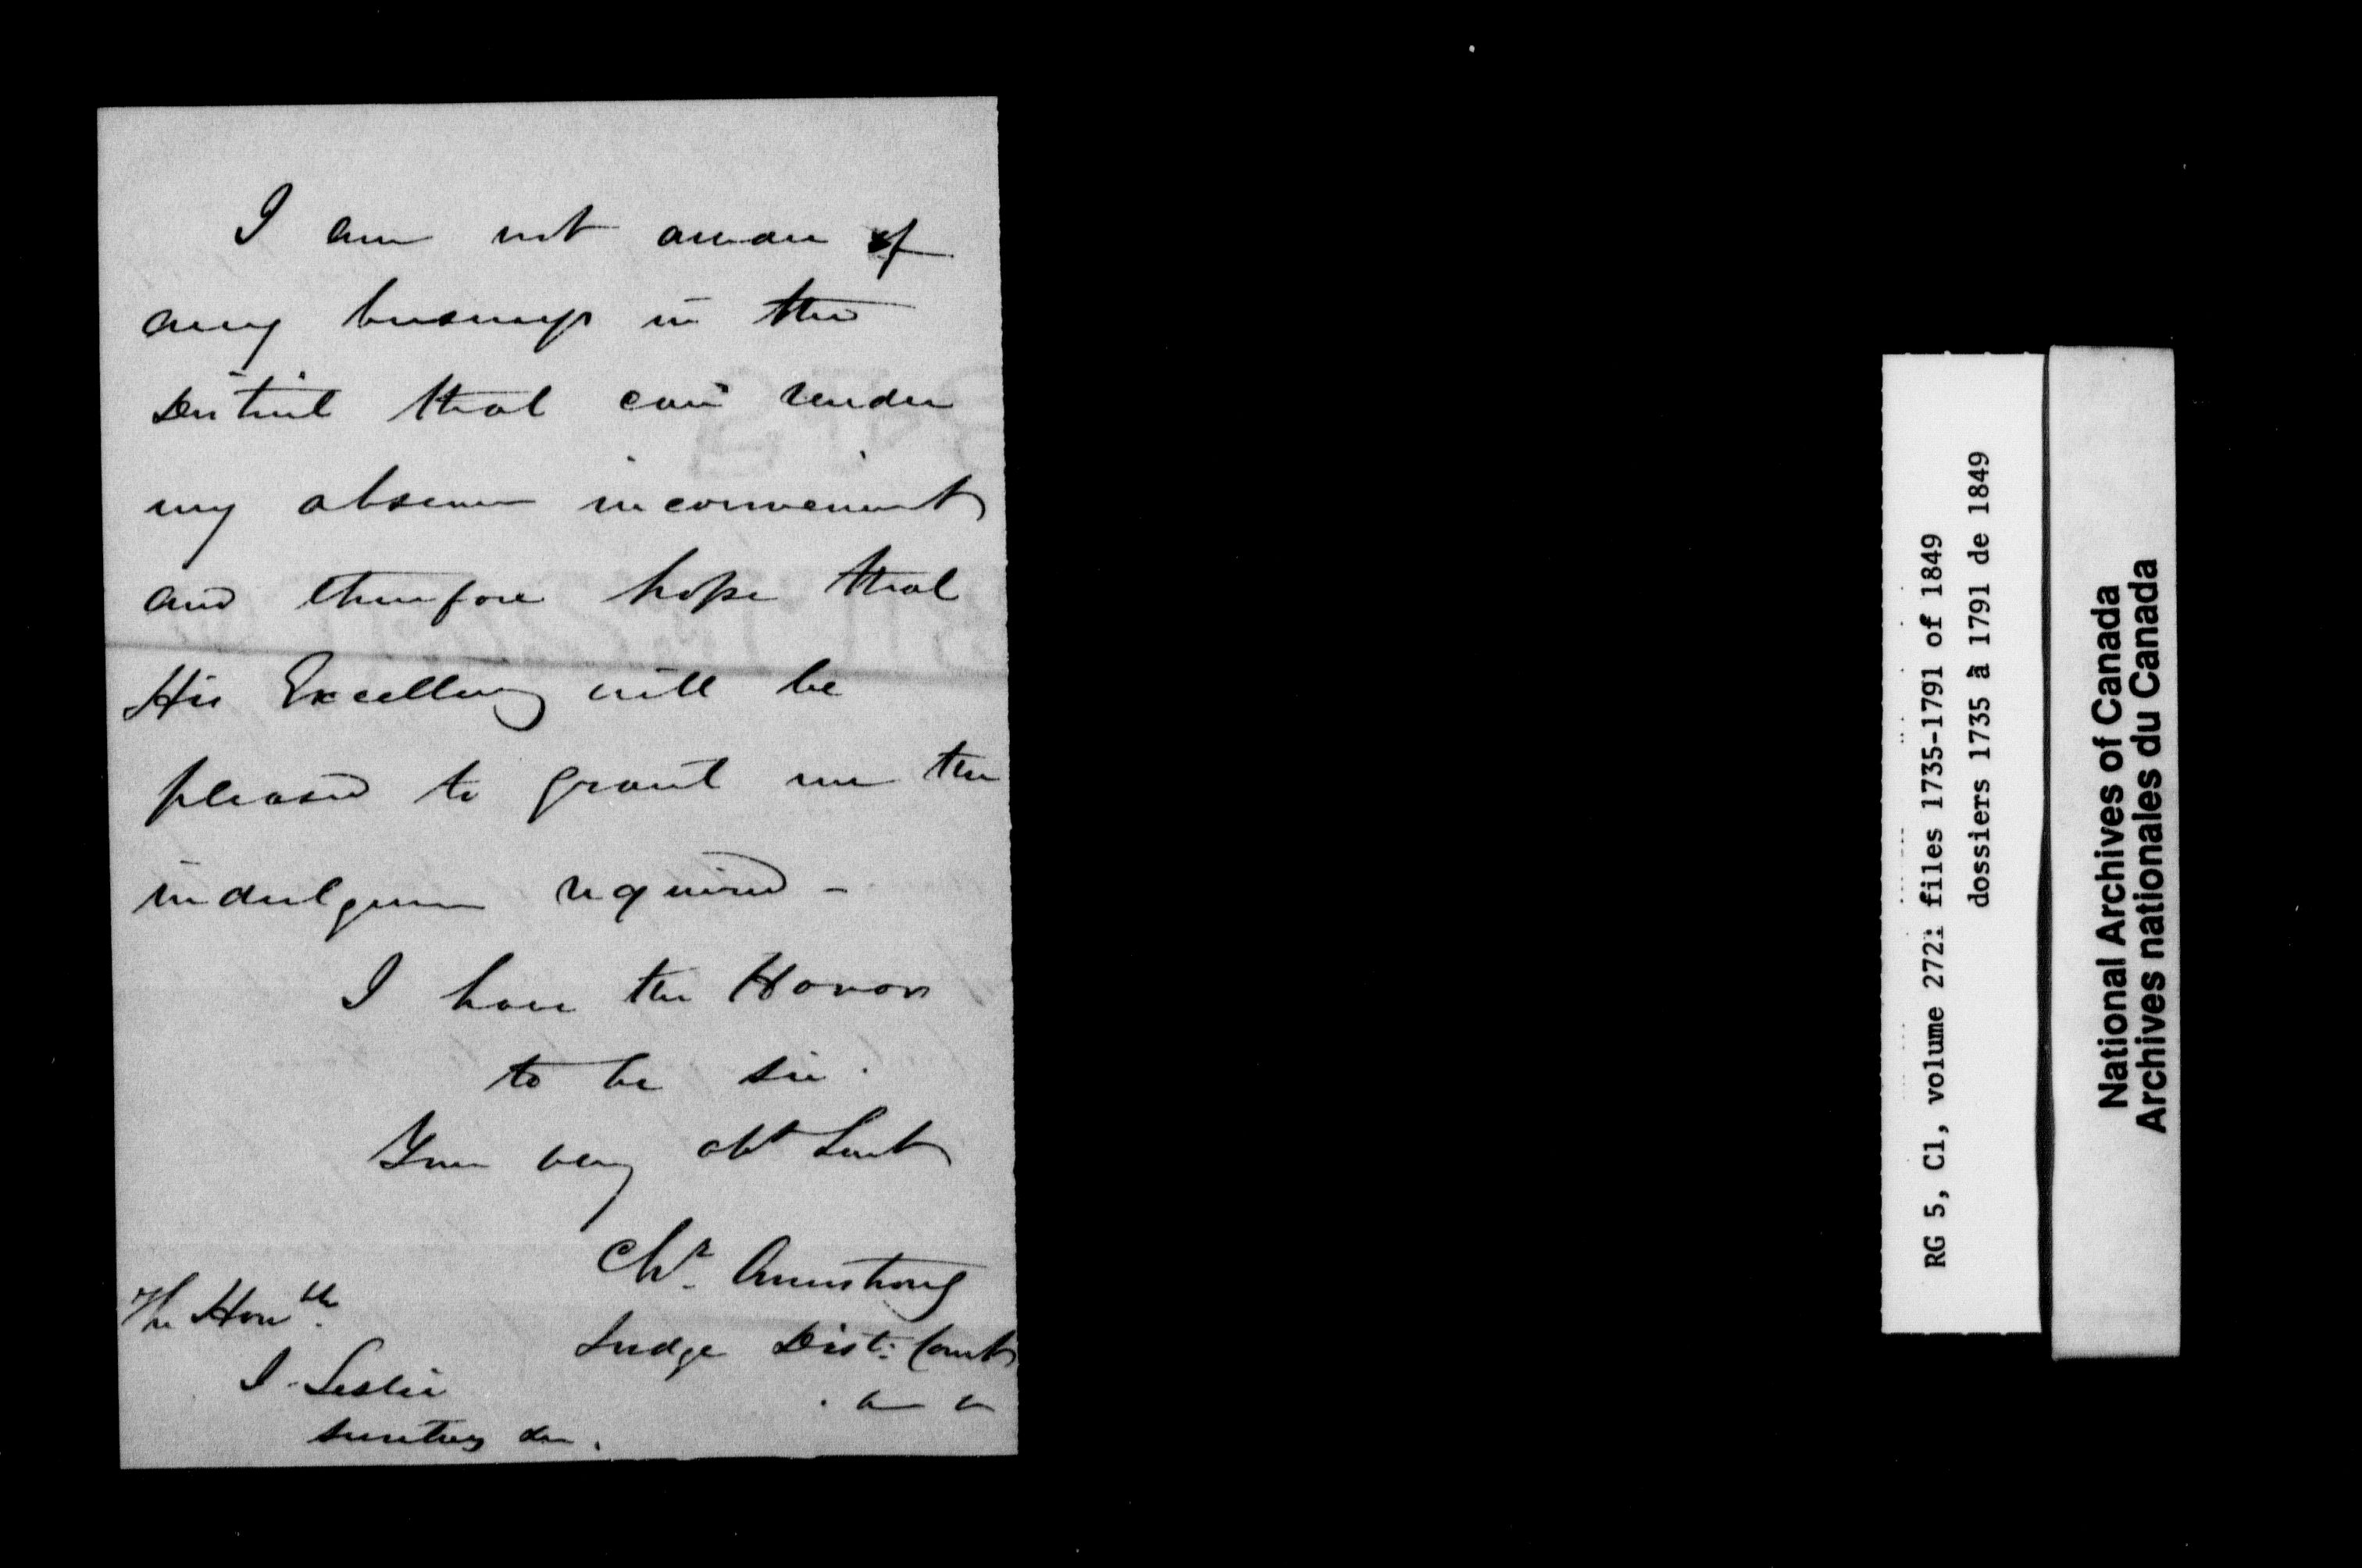 I am not aware of
any business in the
District that can render
my absence inconvenient
and therefore hope that
His Excellency will be
pleased to grant me the
indulgence required -
I have the Honor
to be sir.
Your very obt Servt
Chr. Armstrong
Judge Dist: Court
The Honble.
J. Leslie
Secretary &c.
RG 5, C1, volume 272: files 1735-1791 of 1849
dossiers 1735 à 1791 de 1849
National Archives of Canada
Archives nationales du Canada